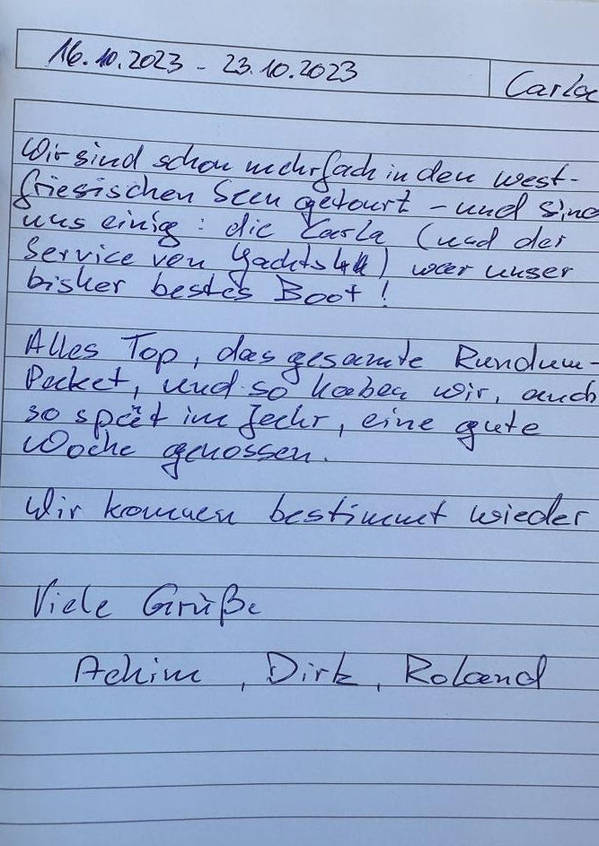 16.10.2023 - 23.10.2023 Carla
Wir sind schon mehrfach in den west-
friesischen Seen getourt - und sind
uns einig: die Carla (und der
Service von Yachts4U) war unser
bisher bestes Boot!
Alles Top, das gesamte Rundum-
Packet, und so haben wir, auch
so spät im Jahr, eine gute
Woche genossen.
Wir kommen bestimmt wieder
Viele Grüße
Achim, Dirk, Roland